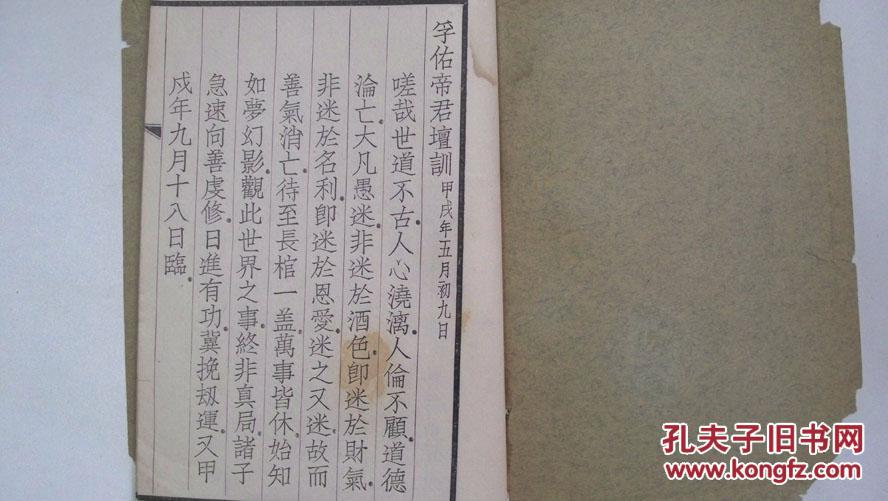 孚佑帝君壇訓 甲戌年五月初九日
嗟哉世道不古人心澆漓人倫不顧道德
淪亡大凡愚迷非迷於酒色卽迷於財氣
非迷於名利卽迷於恩愛迷之又迷故而
善氣消亡待至長棺一盖萬事皆休始知
如夢幻影觀此世界之事終非真局諸子
急速向善虔修日進有功冀挽刼運又甲
戍年九月十八日臨
孔夫子旧书网
www.kongfz.com